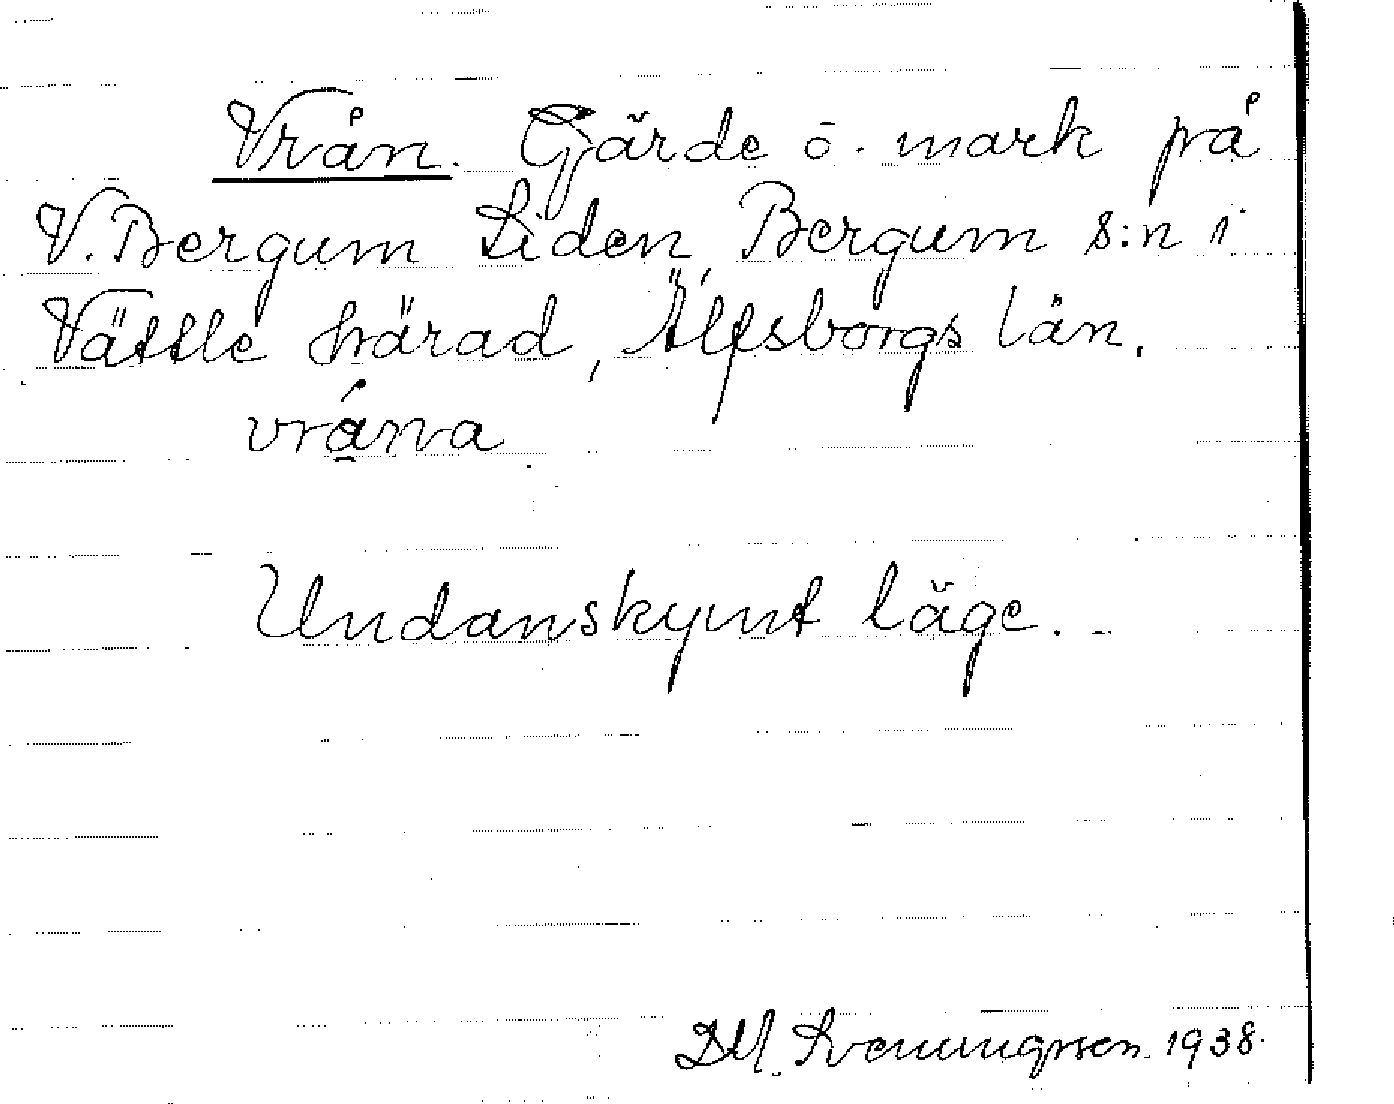 Vrån. Gärde o. mark på
V. Bergum Liden, Bergum s:n i
Vättle härad, Älfsborgs län.
vråna
Undanskymt läge.
DM. Sveningsson 1938.